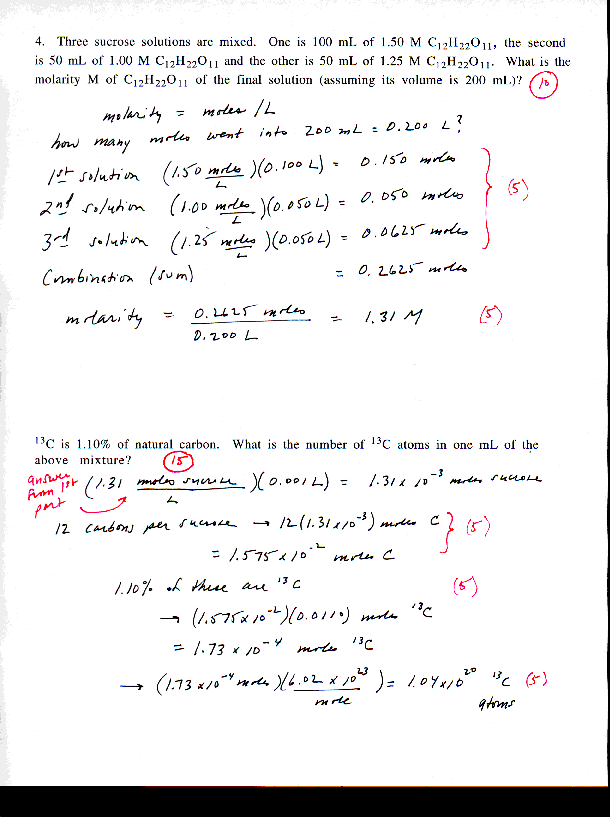 4. Three sucrose solutions are mixed. One is 100 mL of 1.50 M C12H22O11, the second
is 50 mL of 1.00 M C12H22O11 and the other is 50 mL of 1.25 M C12H22O11. What is the
molarity M of C12H22O11 of the final solution (assuming its volume is 200 mL)? (10)
molarity = moles / L
how many moles went into 200 mL = 0.200 L?
1st solution (1.50 moles/L)(0.100 L) = 0.150 moles
2nd solution (1.00 moles/L)(0.050 L) = 0.050 moles (5)
3rd solution (1.25 moles/L)(0.050 L) = 0.0625 moles
Combination (sum) = 0.2625 moles
molarity = 0.2625 moles / 0.200 L = 1.31 M (5)
13C is 1.10% of natural carbon. What is the number of 13C atoms in one mL of the
above mixture? (15)
answer from 1st part (1.31 moles sucrose/L)(0.001 L) = 1.31 x 10^-3 moles sucrose
12 carbons per sucrose → 12(1.31 x 10^-3) moles C (5)
= 1.575 x 10^-2 moles C
1.10% of these are 13C (5)
→ (1.575 x 10^-2)(0.0110) moles 13C
= 1.73 x 10^-4 mole 13C
→ (1.73 x 10^-4 moles)(6.02 x 10^23/mole) = 1.04 x 10^20 13C atoms (5)